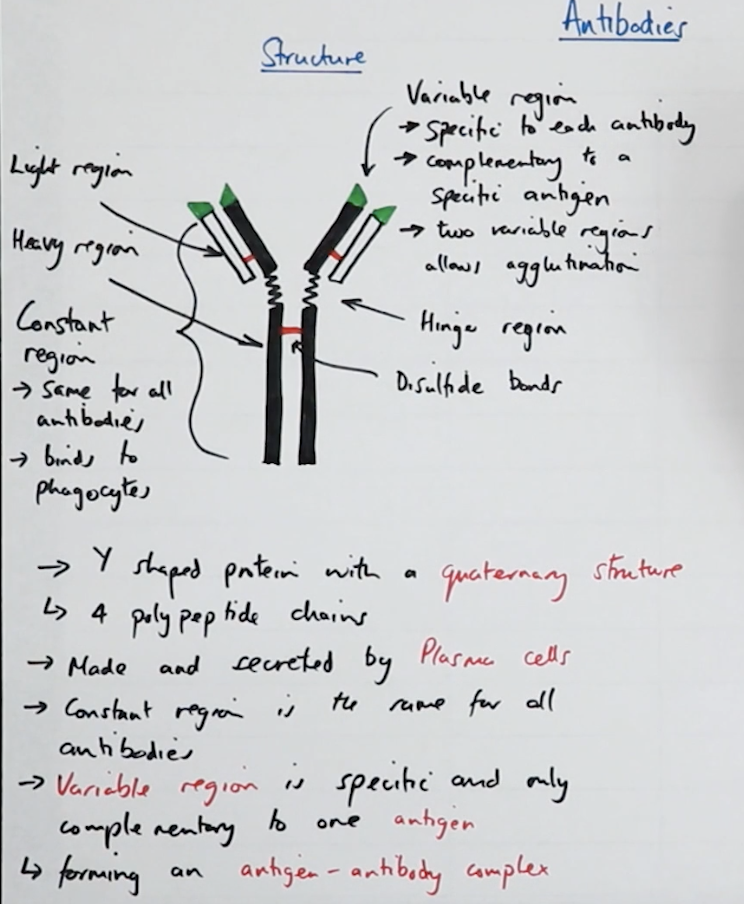 Antibodies
Structure
Variable region
→ Specific to each antibody
→ complementary to a
specific antigen
→ two variable regions
allows agglutination
Light region
Heavy region
Constant
region
→ same for all
antibodies
→ binds to
phagocytes
Hinge region
Disulfide bonds
→ Y shaped protein with a quaternary struture
↳ 4 polypeptide chains
→ Made and secreted by Plasma cells
→ Constant region is the same for all
antibodies
→ Variable region is specific and only
complementary to one antigen
↳ forming an antigen-antibody complex